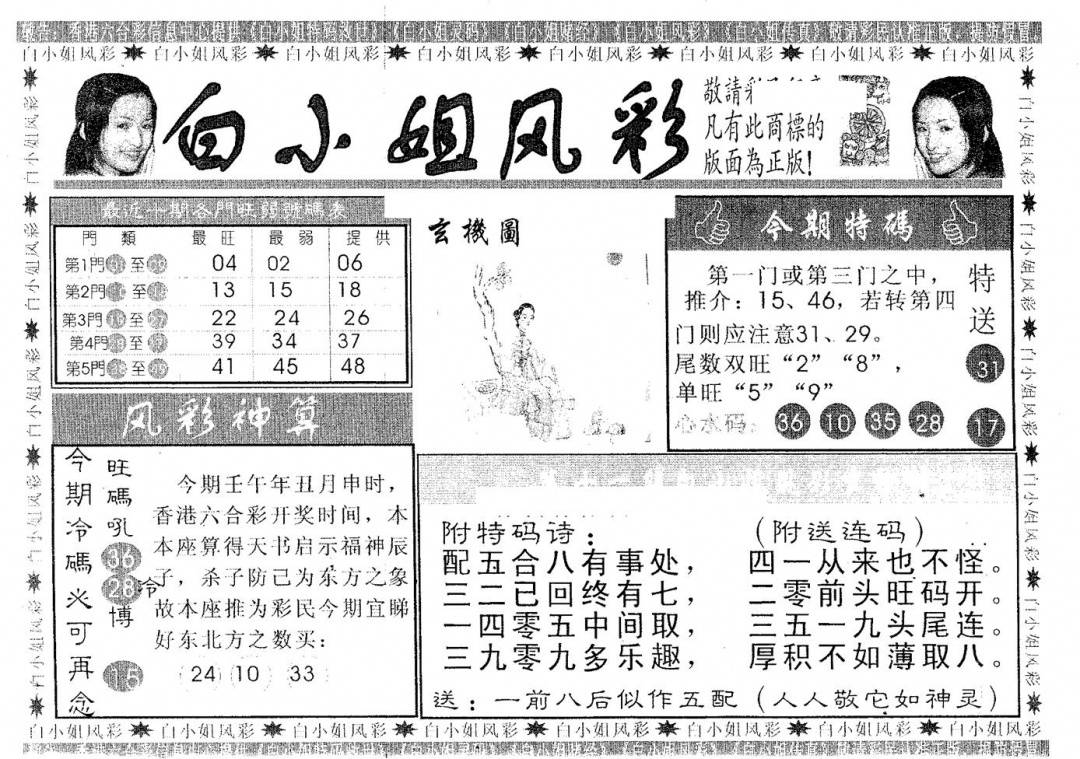 白小姐风彩 白小姐风彩 白小姐风彩 白小姐风彩 白小姐风彩 白小姐风彩 白小姐风彩 白小姐风彩
白小姐风彩
敬請彩
凡有此商標的
版面為正版!
最近一期各門旺弱號碼表
門類 最旺 最弱 提供
第1門 至 09 04 02 06
第2門 至 13 15 18
第3門 至 22 24 26
第4門 至 39 34 37
第5門 至 41 45 48
玄機圖
今期特碼
第一门或第三门之中，
推介：15、46，若转第四
门则应注意31、29。
尾数双旺“2”“8”，
单旺“5”“9”
心水码: 36 10 35 28
特送
31
17
风彩神算
今期冷碼火可再念
旺碼吼
36
28
冷
博
15
今期壬午年丑月申时，
香港六合彩开奖时间，本
本座算得天书启示福神辰
子，杀子防己为东方之象
故本座推为彩民今期宜睇
好东北方之数买：
24 10 33
附特码诗： （附送连码）
配五合八有事处， 四一从来也不怪。
三二已回终有七， 二零前头旺码开。
一四零五中间取， 三五一九头尾连。
三九零九多乐趣， 厚积不如薄取八。
送：一前八后似作五配（人人敬它如神灵）
白小姐风彩 白小姐风彩 白小姐风彩 白小姐风彩 白小姐风彩 白小姐风彩 白小姐风彩 白小姐风彩